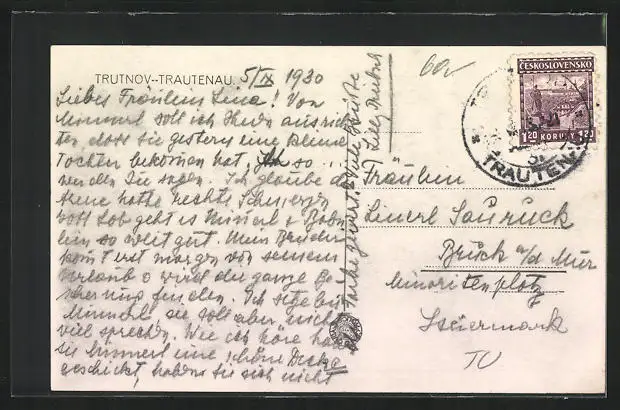 TRUTNOV--TRAUTENAU. 5/IX 1930
Liebes Fräulein Lina! Von
Mimmerl soll ich Ihnen ausrich-
ten, dass sie gestern eine kleine
Tochter bekommen hat, so ...
werden Sie sagen. Ich glaube d
Arme hatte rechte Schmerzen
Gott Lob geht es Mimmerl & Baby-
lein so weit gut. Mein Bruder
kommt erst morgen von seinem
Urlaub & wird die ganze Be-
scherung finden. Ich sitze bei
Mimmerl sie soll aber nicht
viel sprechen. Wie ich höre ha
sie Mimmerl eine schöne Decke
geschickt, haben Sie sich nicht
geirrt? Viele Grüße
Lilly
60
ČESKOSLOVENSKO
1.20 KORUNY 1.20
TRAUTEN
Fräulein
Linerl Sauruck
Bruck a/d Mur
Minoritenplatz
Steiermark